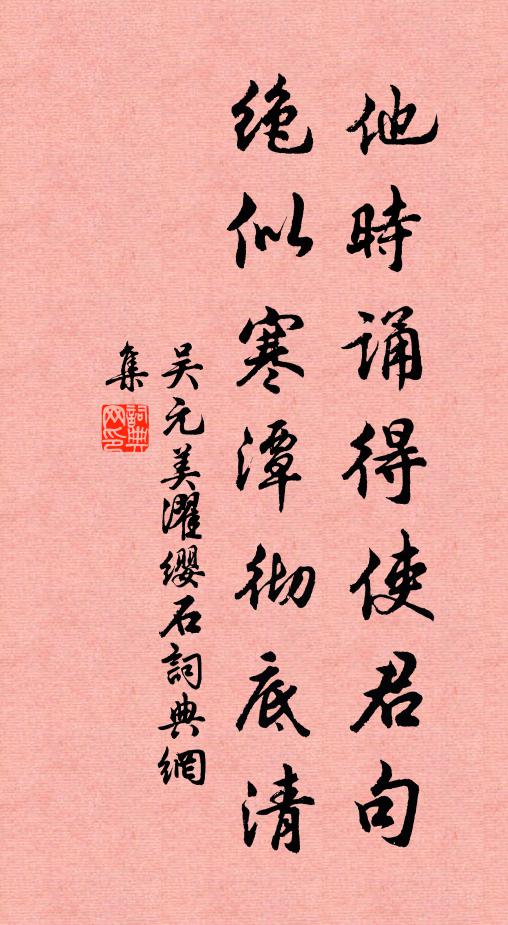 他時誦得使君句
絶似寒潭彻底清
吴元美濯缨石詞典網
集
詞典
网印